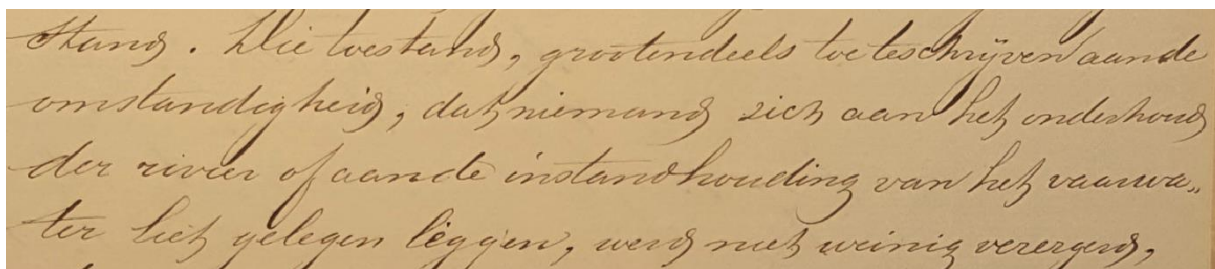 stand. Die toestand, grootendeels toe te schrijven aan de
omstandigheid, dat niemand zich aan het onderhoud
der rivier of aan de instandhouding van het vaarwa„
ter liet gelegen liggen, werd niet weinig verergerd,